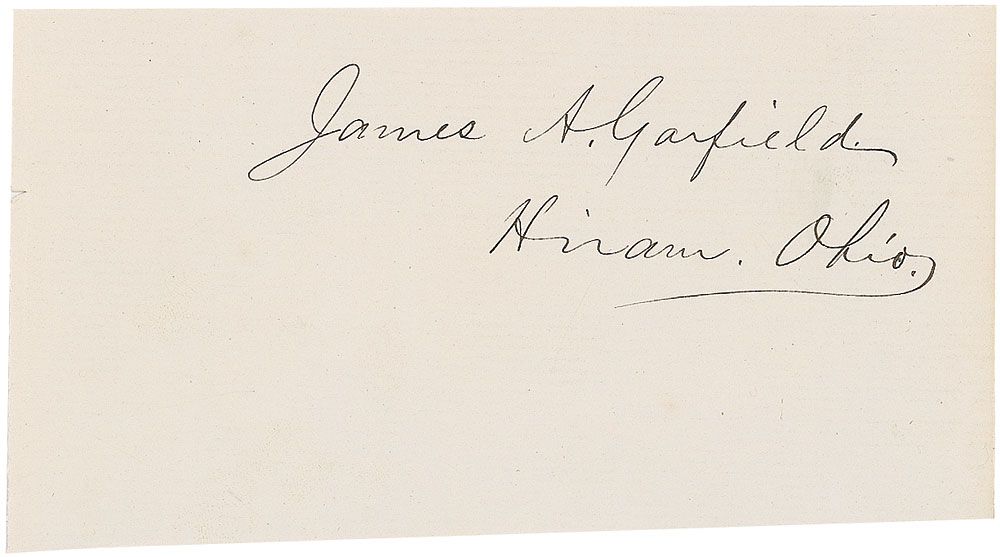 James A. Garfield.
Hiram. Ohio.